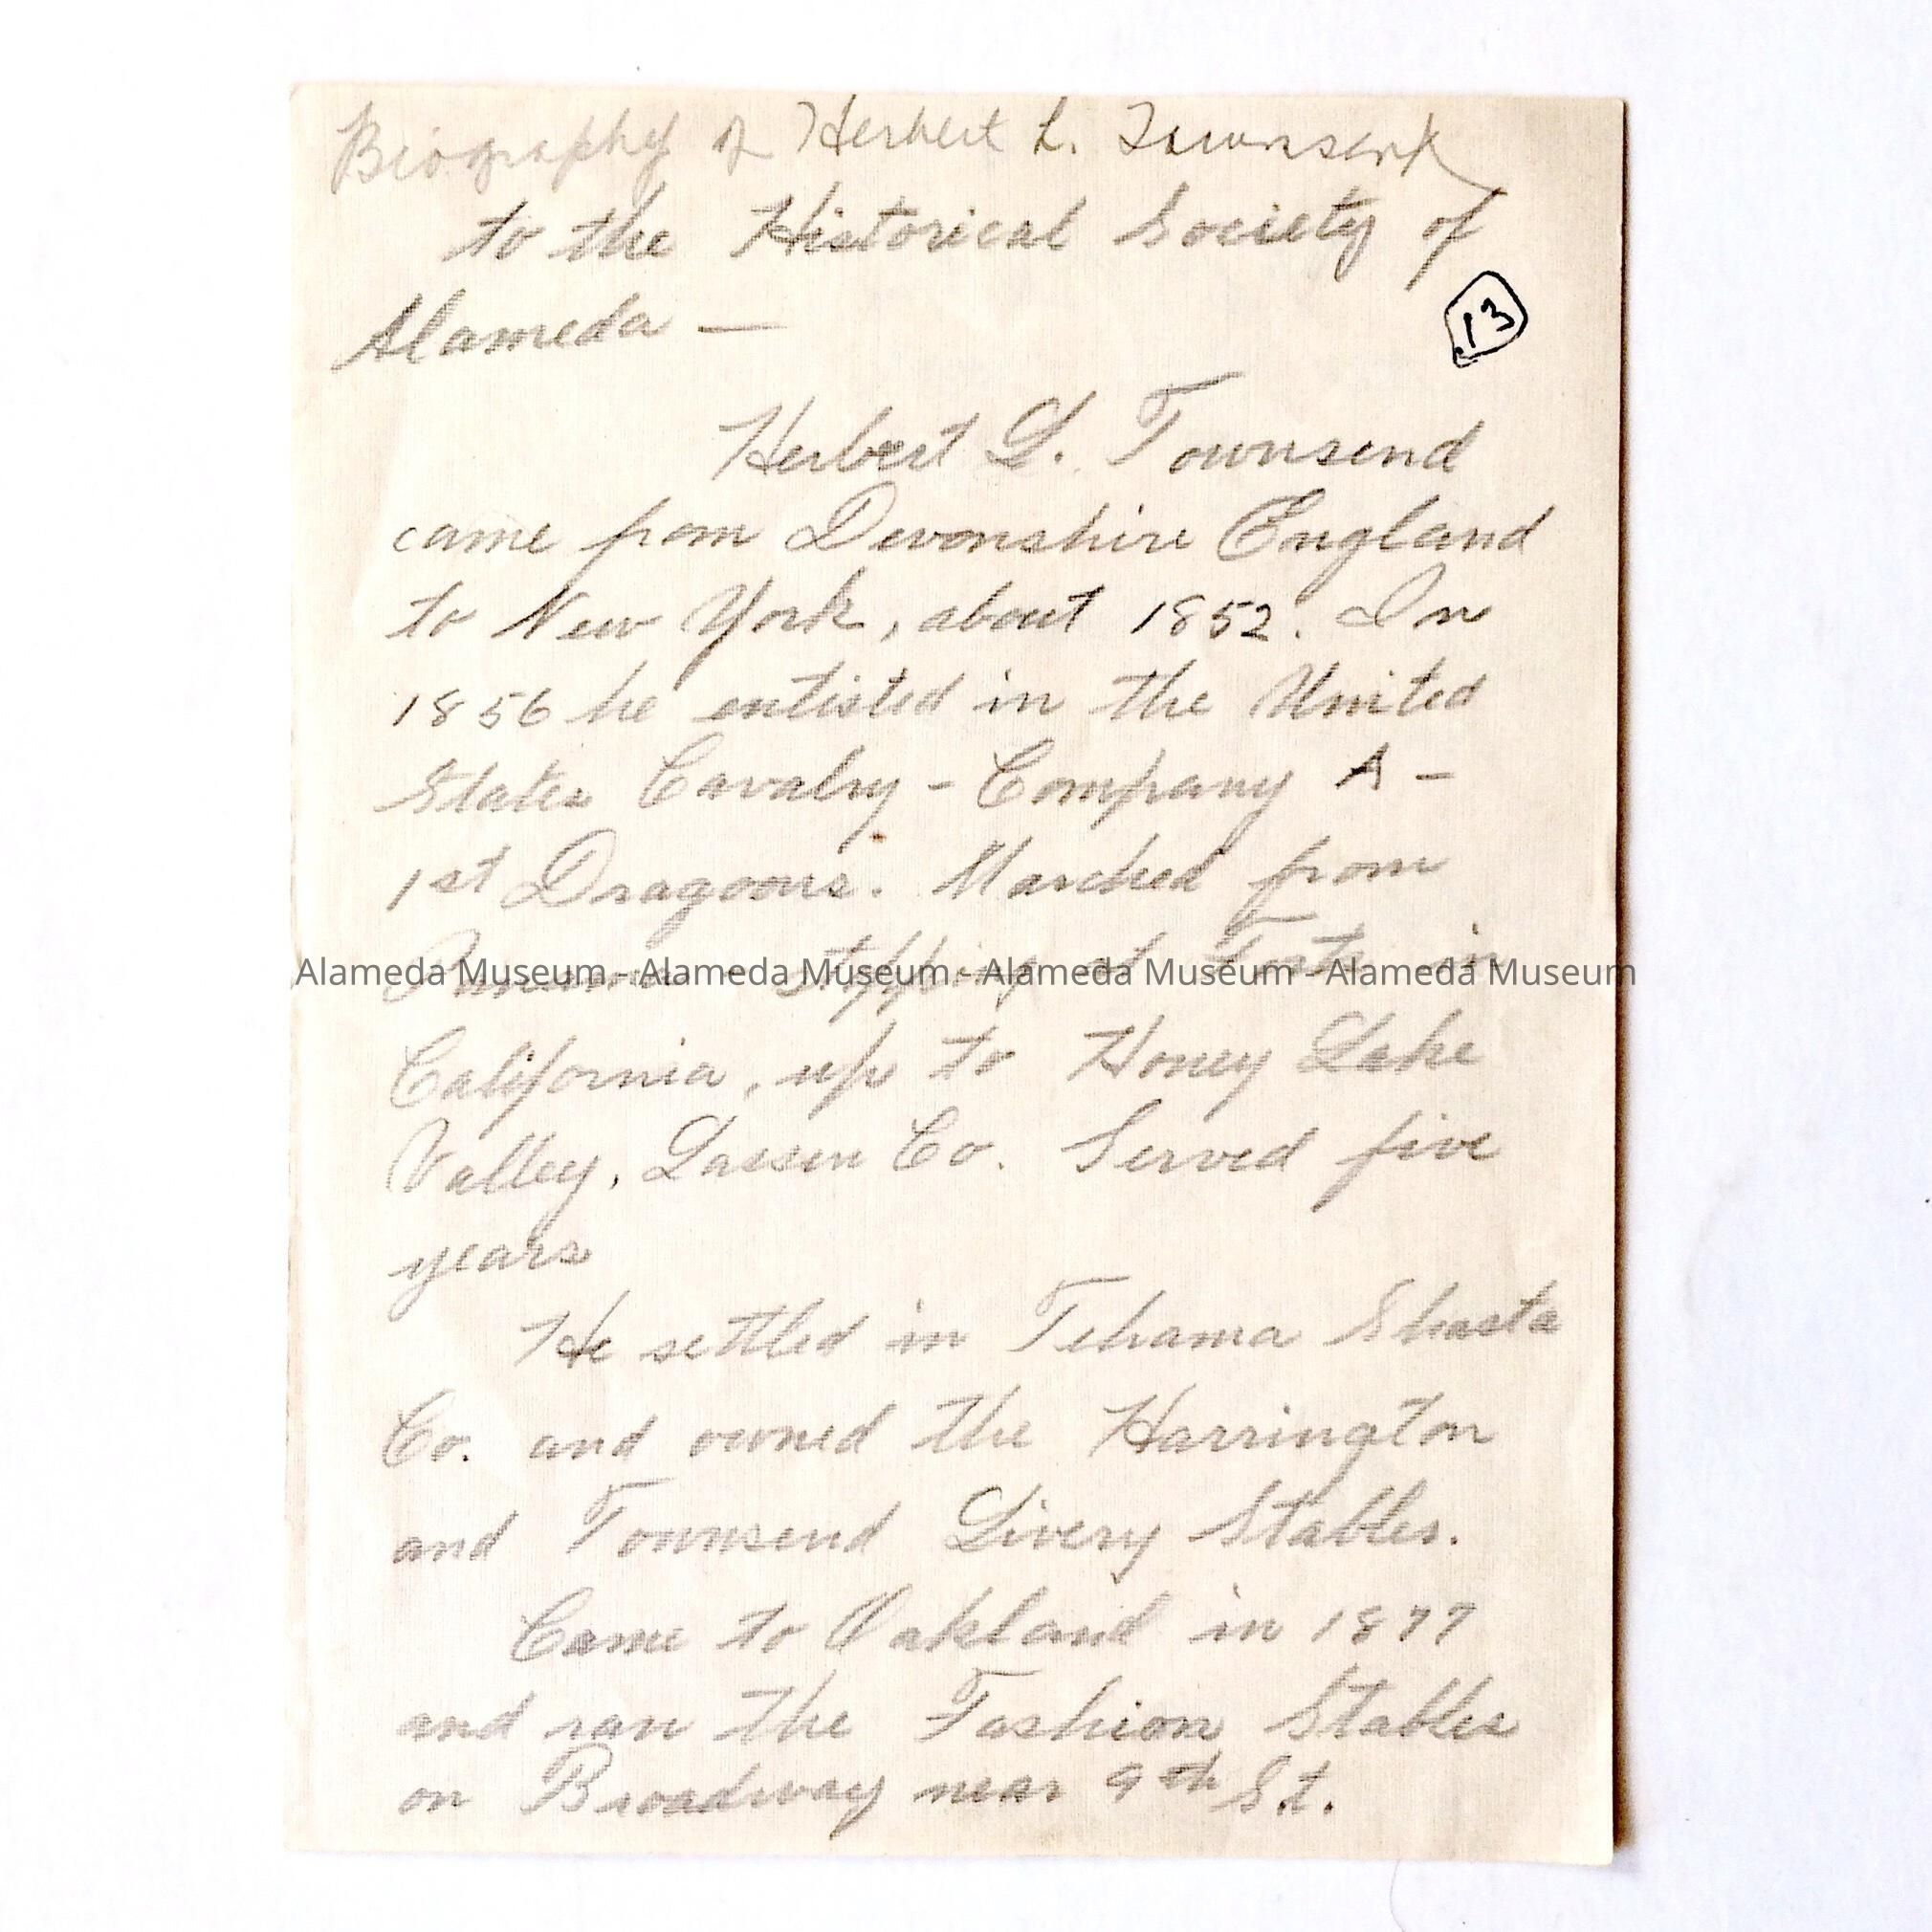 Biography of Herbert L. Townsend
to the Historical Society of
13
Alameda —
Herbert L. Townsend
came from Devonshire England
to New York, about 1852. In
1856 he entisted in the United
States Cavalry - Company A -
1st Dragoons. Marched from
Panama - stopping at Forts in
Alameda Museum - Alameda Museum - Alameda Museum - Alameda Museum
California, up to Honey Lake
Valley, Lassen Co. Served five
years
He settled in Tehama Shasta
Co. and owned the Harrington
and Townsend Livery Stables.
Came to Oakland in 1877
and ran the Fashion Stables
on Broadway near 9th St.